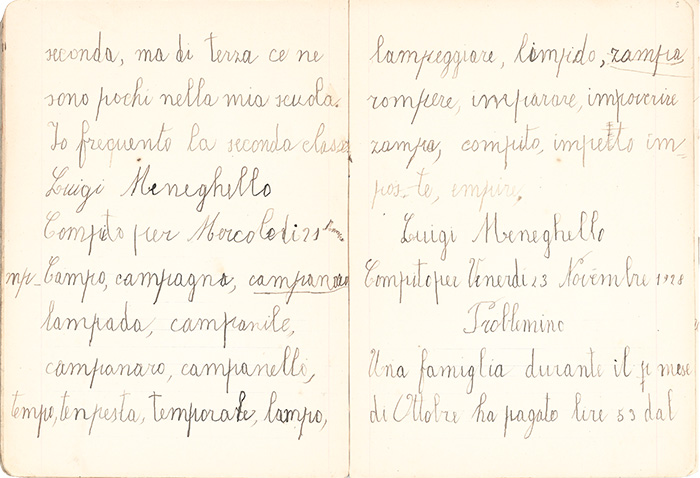 seconda, ma di terza ce ne
sono pochi nella mia scuola.
Io frequento la seconda classe
Luigi Meneghello
Compito per Mercoledi 21
mp- Campo, campagna, campanaro
lampada, campanile,
campanaro, campanello,
tempo, tenpesta, temporale, lampo,
lampeggiare, limpido, zampa,
rompere, imparare, impoverire
zampa, compito, impetto im-
pos-to, empire,
Luigi Meneghello
Compito per Venerdi 23 Novembre 1928
Problemino
Una famiglia durante il mese
di Ottobre ha pagato lire 53 dal